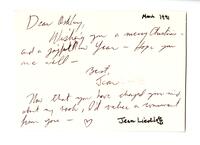 March 1991
Dear Ashley,
Wishing you a merry Christmas
and a joyful New Year – Hope you
are well –
Best,
Jean
Now that you have changed your mind
about my work, I'd value a comment
from you – ♡
Jean Liedloff